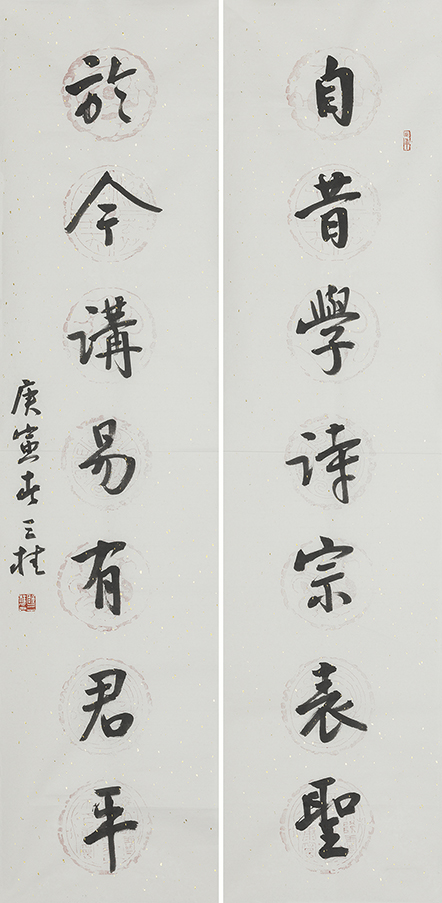 自昔學詩宗表聖
於今講易有君平
庚寅春三桂